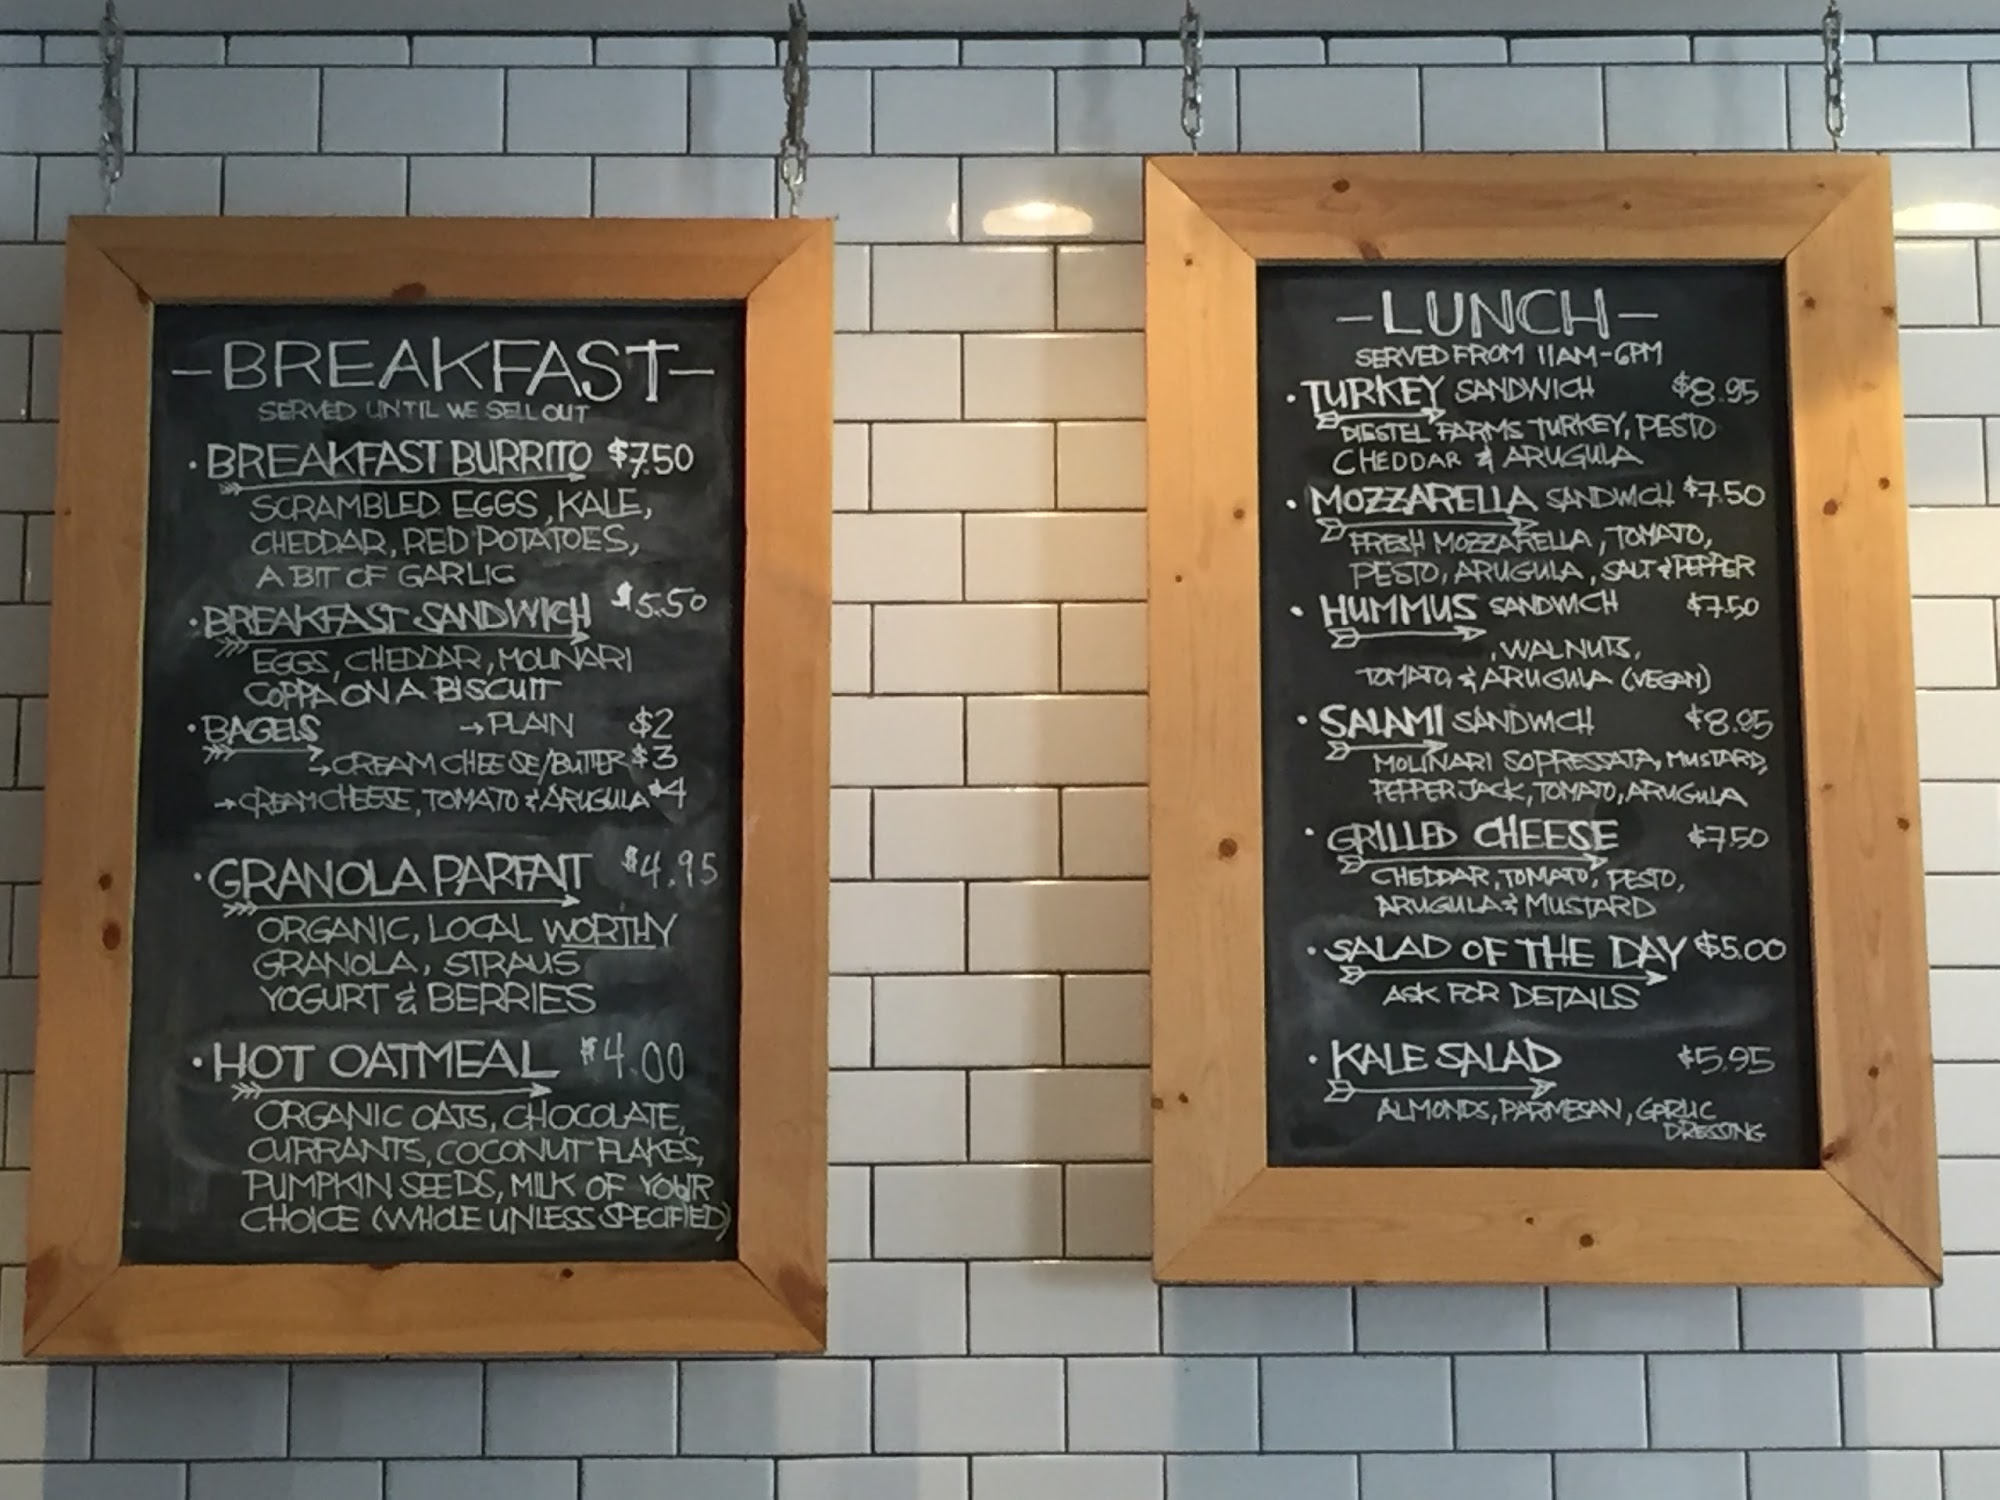 -BREAKFAST-
SERVED UNTIL WE SELL OUT
• BREAKFAST BURRITO $7.50
SCRAMBLED EGGS, KALE,
CHEDDAR, RED POTATOES,
A BIT OF GARLIC
• BREAKFAST SANDWICH $5.50
EGGS, CHEDDAR, MOLINARI
COPPA ON A BISCUIT
• BAGELS → PLAIN $2
→ CREAM CHEESE/BUTTER $3
→ CREAM CHEESE, TOMATO & ARUGULA $4
• GRANOLA PARFAIT $4.95
ORGANIC, LOCAL WORTHY
GRANOLA, STRAUS
YOGURT & BERRIES
• HOT OATMEAL $4.00
ORGANIC OATS, CHOCOLATE,
CURRANTS, COCONUT FLAKES,
PUMPKIN SEEDS, MILK OF YOUR
CHOICE (WHOLE UNLESS SPECIFIED)
-LUNCH-
SERVED FROM 11AM-6PM
• TURKEY SANDWICH $8.95
DIESTEL FARMS TURKEY, PESTO
CHEDDAR & ARUGULA
• MOZZARELLA SANDWICH $7.50
FRESH MOZZARELLA, TOMATO,
PESTO, ARUGULA, SALT & PEPPER
• HUMMUS SANDWICH $7.50
, WALNUTS,
TOMATO, & ARUGULA (VEGAN)
• SALAMI SANDWICH $8.95
MOLINARI SOPRESSATA, MUSTARD,
PEPPER JACK, TOMATO, ARUGULA
• GRILLED CHEESE $7.50
CHEDDAR, TOMATO, PESTO,
ARUGULA & MUSTARD
• SALAD OF THE DAY $5.00
ASK FOR DETAILS
• KALE SALAD $5.95
ALMONDS, PARMESAN, GARLIC
DRESSING